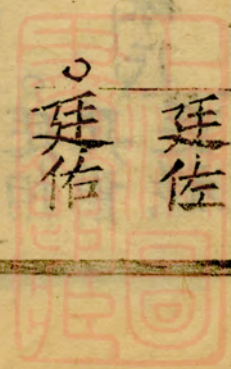 廷佐
廷佑